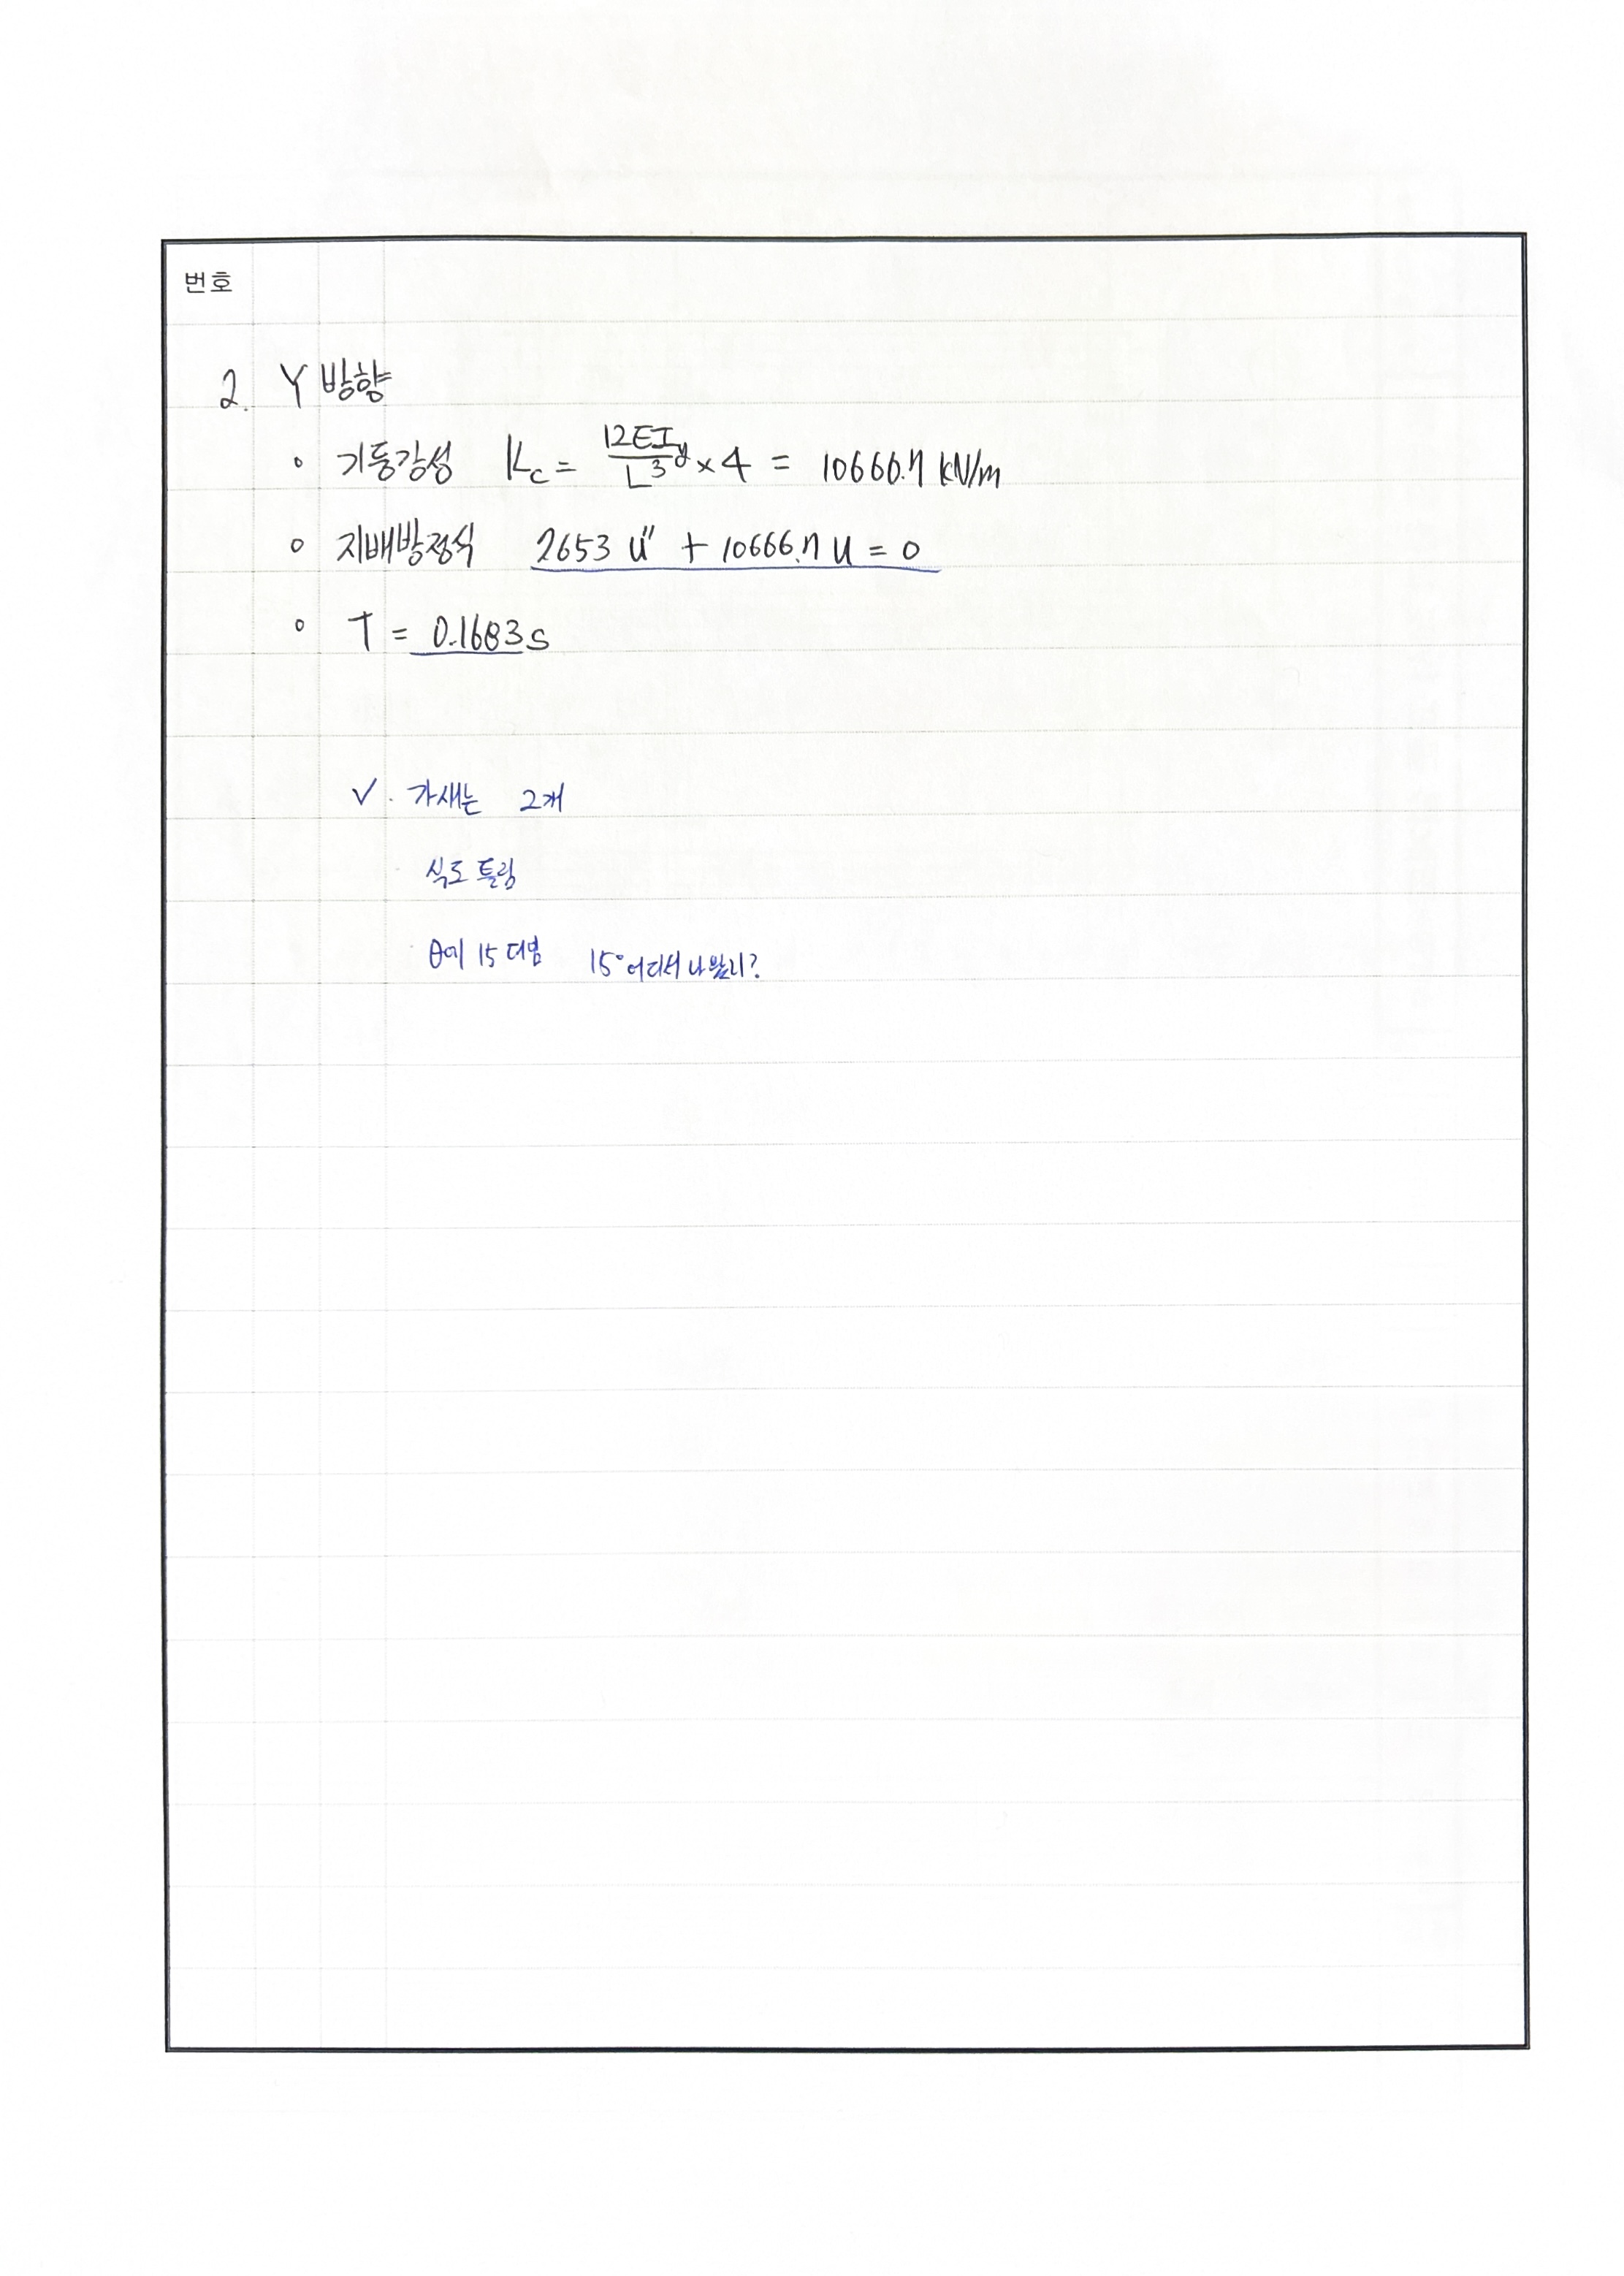 번호
2. Y 방향
∘ 기둥강성 Kc = 12EIy/L³ × 4 = 10666.7 kN/m
∘ 지배방정식 2653 u″ + 10666.7 u = 0
∘ T = 0.1683s
✓ · 가새는 2개
· 식도 틀림
· θ에 15 더함 15° 어디서 나왔니?